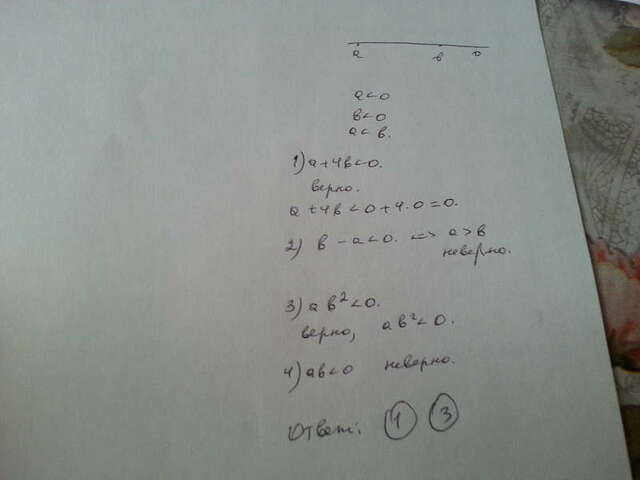 а в 0
а<0
в<0
а<в.
1) а+4в<0.
верно.
а+4в<0+4·0=0.
2) в-а<0. <=> а>в
неверно.
3) ав²<0.
верно, ав²<0.
4) ав<0 неверно.
Ответ: 1 3